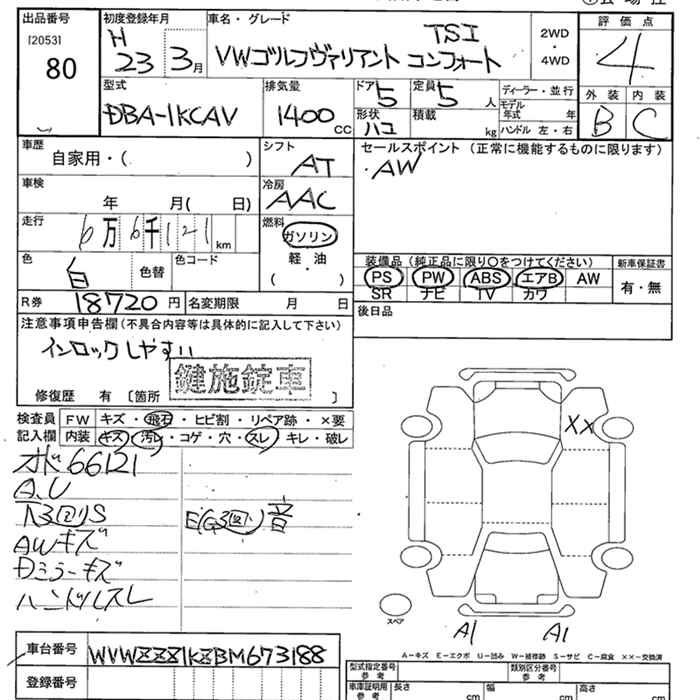 出品番号 初度登録年月 車名・グレード 評価点
[2053] 80
H 23 3月
VWゴルフヴァリアント TSI コンフォート
2WD・4WD
4
型式 排気量 ドア 定員 ディーラー・並行 外装 内装
DBA-1KCAV 1400cc 5 5人
形状 ハコ 積載 kg
モデル年式 年
ハンドル 左・右
B C
車歴 シフト セールスポイント(正常に機能するものに限ります)
自家用・( ) AT ・AW
車検 冷房
年 月( 日) AAC
走行 燃料
6万6千121km ガソリン
軽・油
( )
色 色コード
白 色替
装備品(純正品に限り○をつけてください) 新車保証書
PS PW ABS エアB AW 有・無
SR ナビ TV カワ
R券 18720円 名変期限 月 日
後日品
注意事項申告欄(不具合内容等は具体的に記入して下さい)
インロックしやすい
鍵施錠車
修復歴 有 〔箇所 〕
検査員 FW キズ・飛石・ヒビ割・リペア跡・×要
記入欄 内装 キズ・汚レ・コゲ・穴・スレ・キレ・破レ
オド66121
A.U
AWキズ
Dミラーキズ
ハンドルスレ
音
XX
スペア
A1 A1
A-キズ E-エクボ U-凹み W-補修跡 S-サビ C-腐食 ××-交換済
車台番号 WVWZZZ1KZBM673188
登録番号
型式指定番号 参考 類別区分番号 参考
車庫証明用 参考 長さ cm 幅 cm 高さ cm